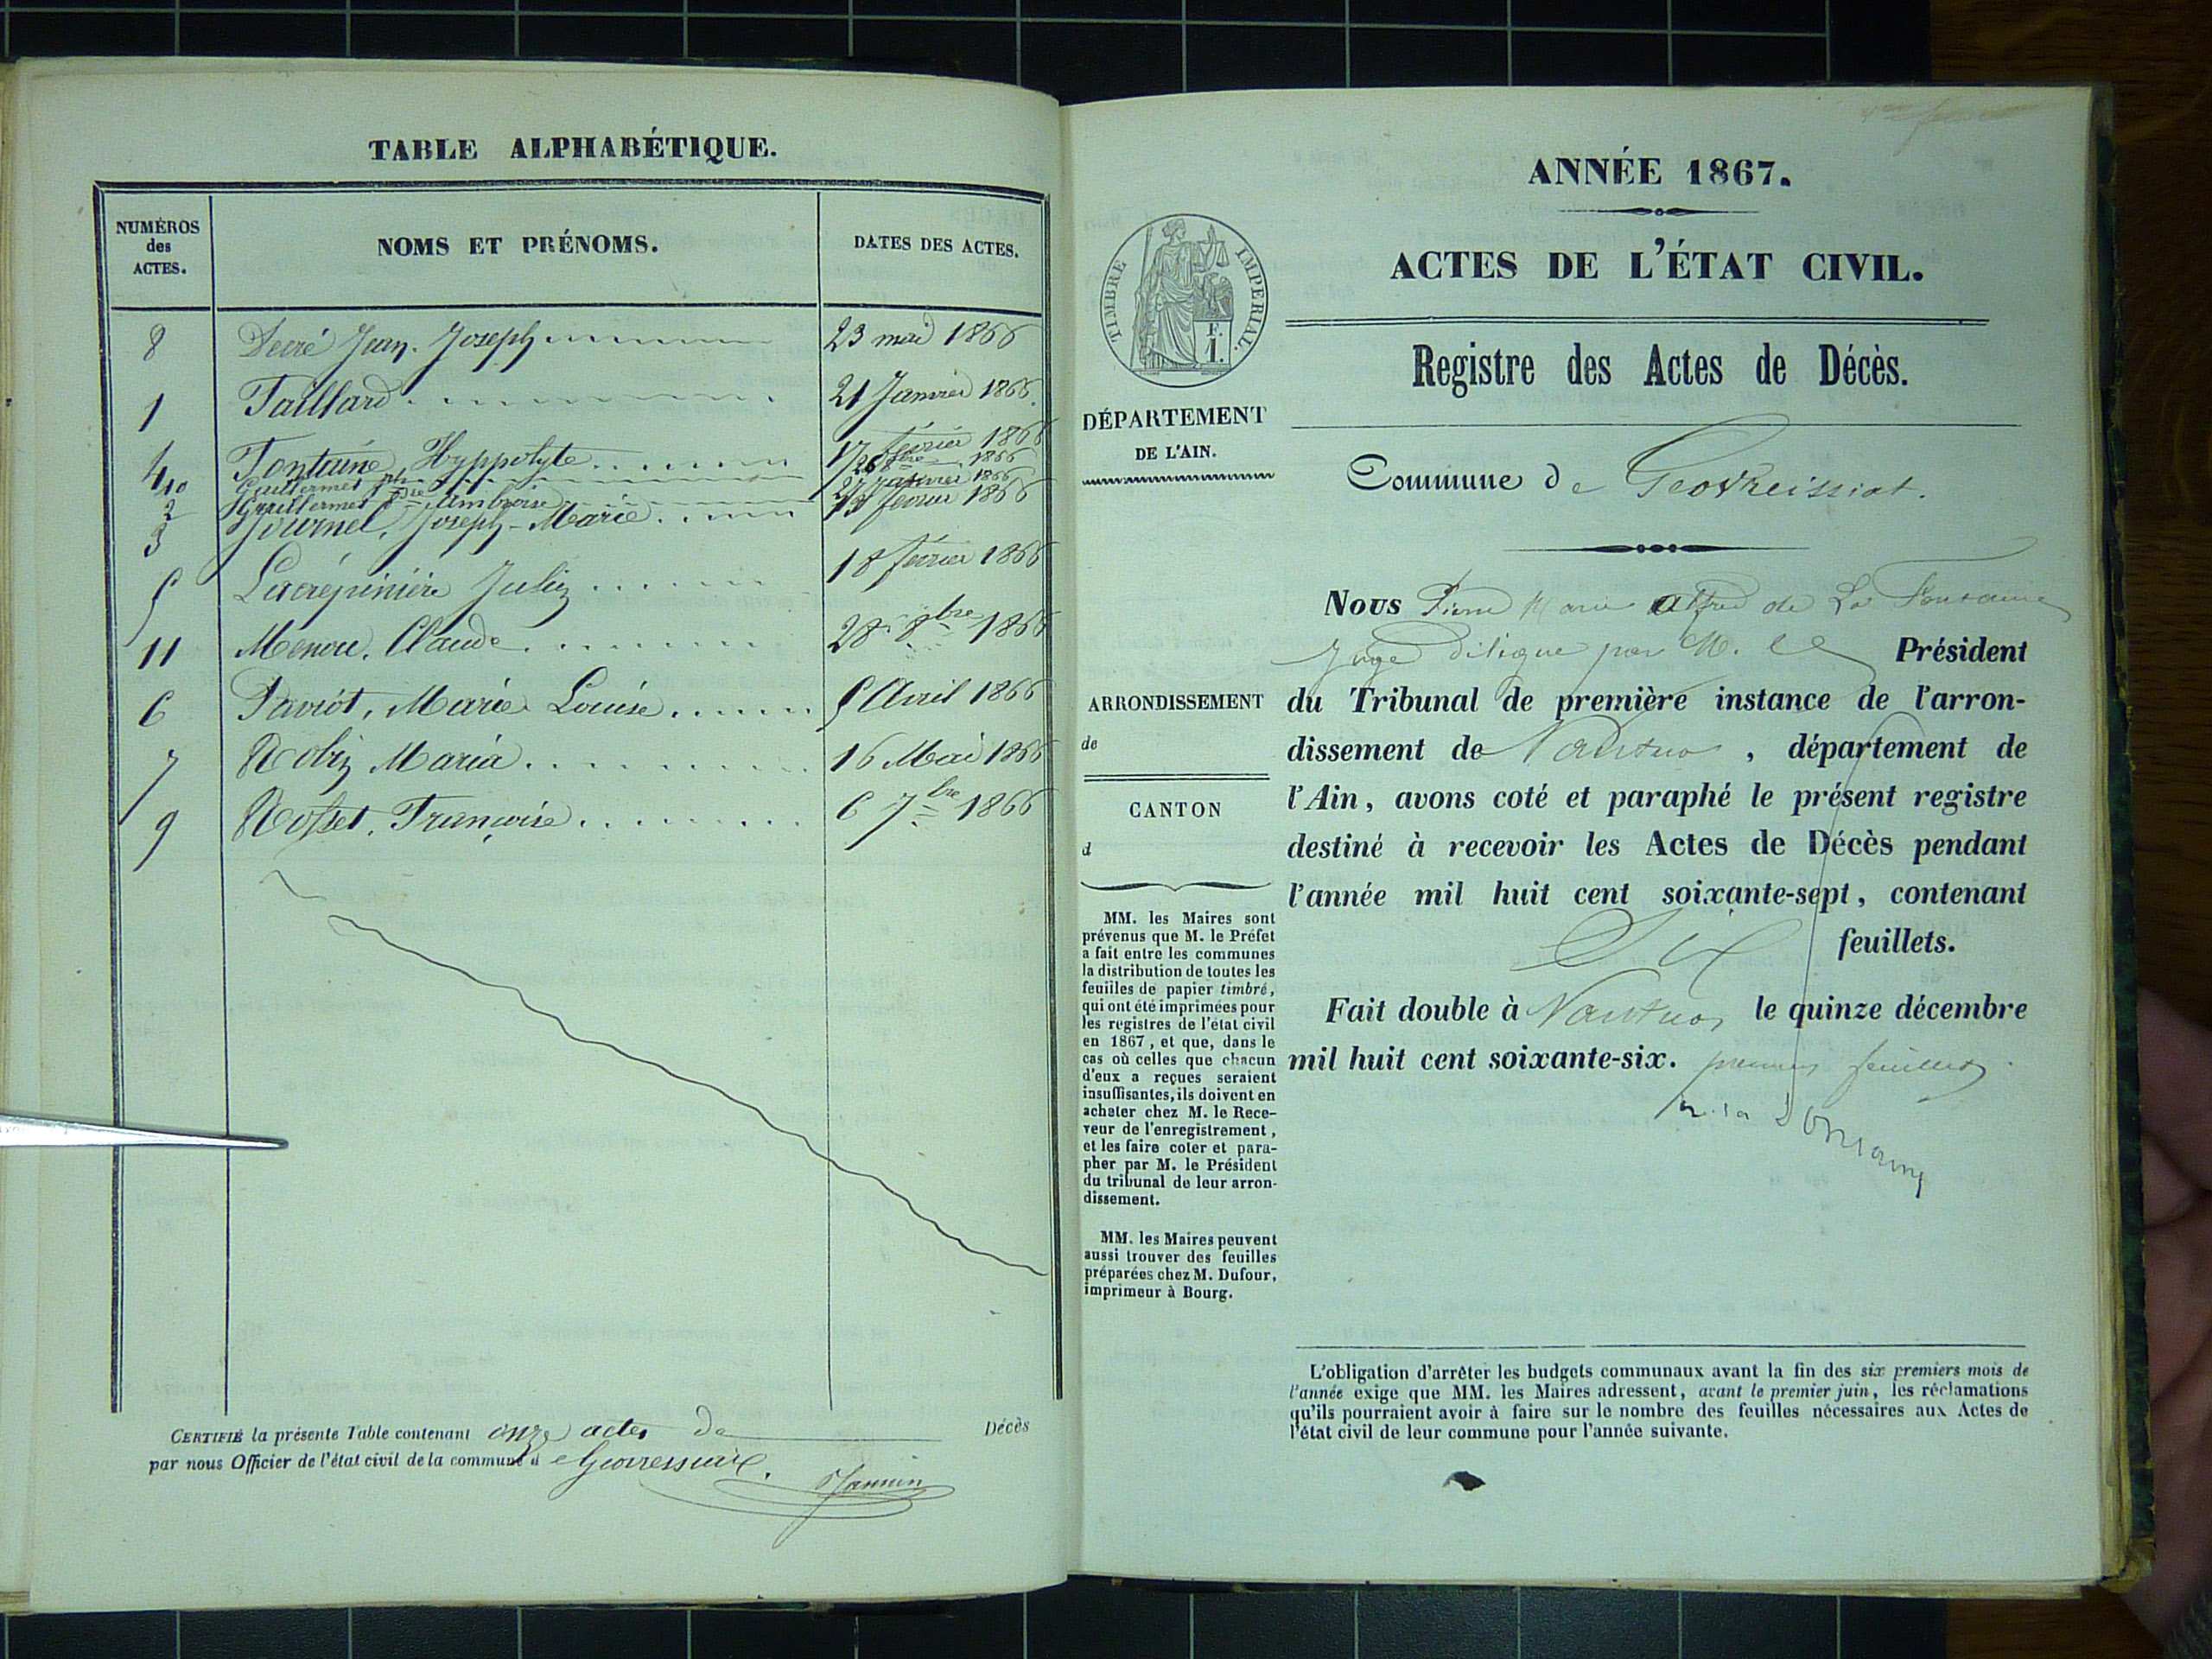 TABLE ALPHABÉTIQUE.
NUMÉROS
des
ACTES.
NOMS ET PRÉNOMS.
DATES DES ACTES.
8 Jean-Joseph 23 mai 1866
1 Faillard 21 Janvier 1866
4 Fontaine, Hyppolyte 17 février 1866
10 Guillermet 26 8bre 1866
2 Guillermet Ambroise 27 janvier 1866
3 Journel, Joseph-Marie 13 février 1866
5 Lacrépinière Julie 18 février 1866
11 Menou, Claude 28 8bre 1866
6 Paviot, Marie Louise 5 Avril 1866
7 Robin Maria 16 Mai 1866
9 Rosset, Françoise 6 7bre 1866
CERTIFIÉ la présente Table contenant onze actes de Décès
par nous Officier de l'état civil de la commune d
ANNÉE 1867.
ACTES DE L'ÉTAT CIVIL.
TIMBRE IMPÉRIAL.
F.
1.
Registre des Actes de Décès.
DÉPARTEMENT
DE L'AIN.
Commune de Geovreissiat.
Nous Pierre Marie Alfred de La Fontaine
Juge délégué par M. le Président
du Tribunal de première instance de l'arron-
dissement de Nantua, département de
l'Ain, avons coté et paraphé le présent registre
destiné à recevoir les Actes de Décès pendant
l'année mil huit cent soixante-sept, contenant
Six feuillets.
Fait double à Nantua, le quinze décembre
mil huit cent soixante-six. premier feuillet.
ARRONDISSEMENT
de
CANTON
d
MM. les Maires sont
prévenus que M. le Préfet
a fait entre les communes
la distribution de toutes les
feuilles de papier timbré,
qui ont été imprimées pour
les registres de l'état civil
en 1867, et que, dans le
cas où celles que chacun
d'eux a reçues seraient
insuffisantes, ils doivent en
acheter chez M. le Rece-
veur de l'enregistrement,
et les faire coter et para-
pher par M. le Président
du tribunal de leur arron-
dissement.
MM. les Maires peuvent
aussi trouver des feuilles
préparées chez M. Dufour,
imprimeur à Bourg.
L'obligation d'arrêter les budgets communaux avant la fin des six premiers mois de
l'année exige que MM. les Maires adressent, avant le premier juin, les réclamations
qu'ils pourraient avoir à faire sur le nombre des feuilles nécessaires aux Actes de
l'état civil de leur commune pour l'année suivante.